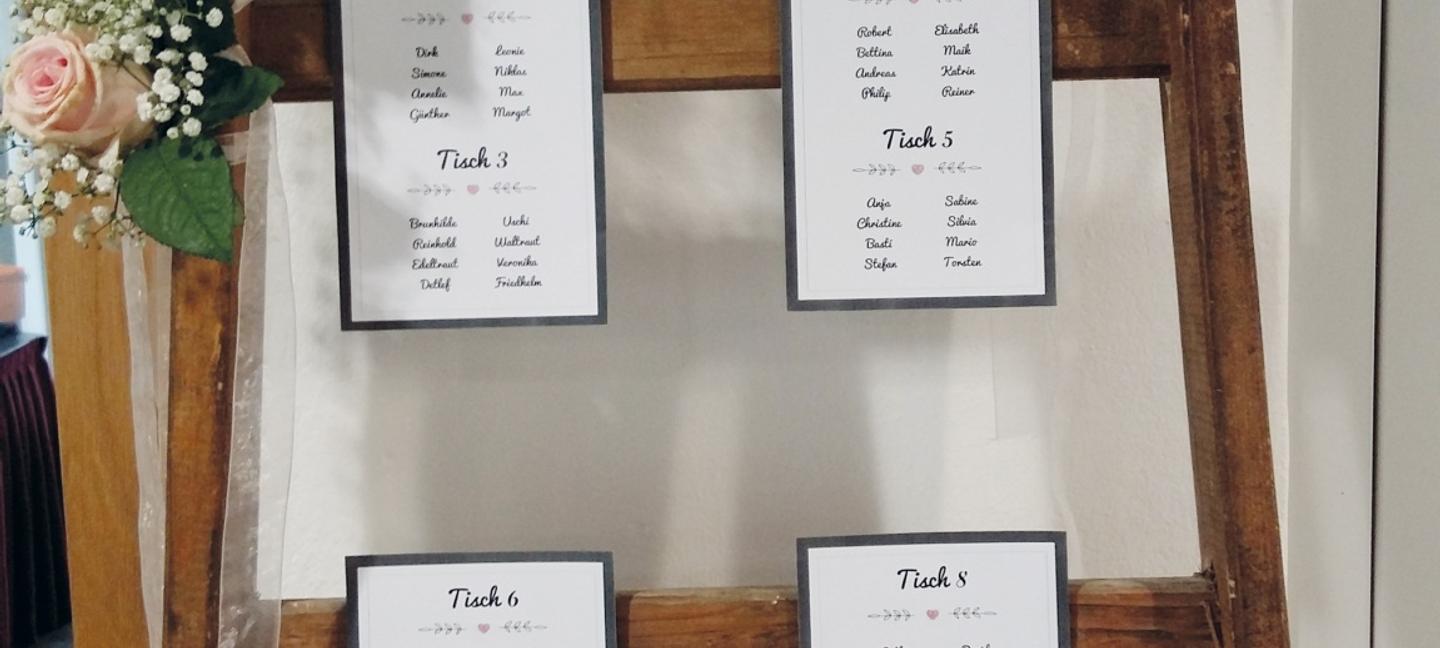 Dirk Leonie
Simone Niklas
Annelie Max
Günther Margot
Tisch 3
Brunhilde Uschi
Reinhold Waltraut
Edeltraut Veronika
Detlef Friedhelm
Robert Elisabeth
Bettina Maik
Andreas Katrin
Philip Reiner
Tisch 5
Anja Sabine
Christine Silvia
Basti Mario
Stefan Torsten
Tisch 6
Tisch 8